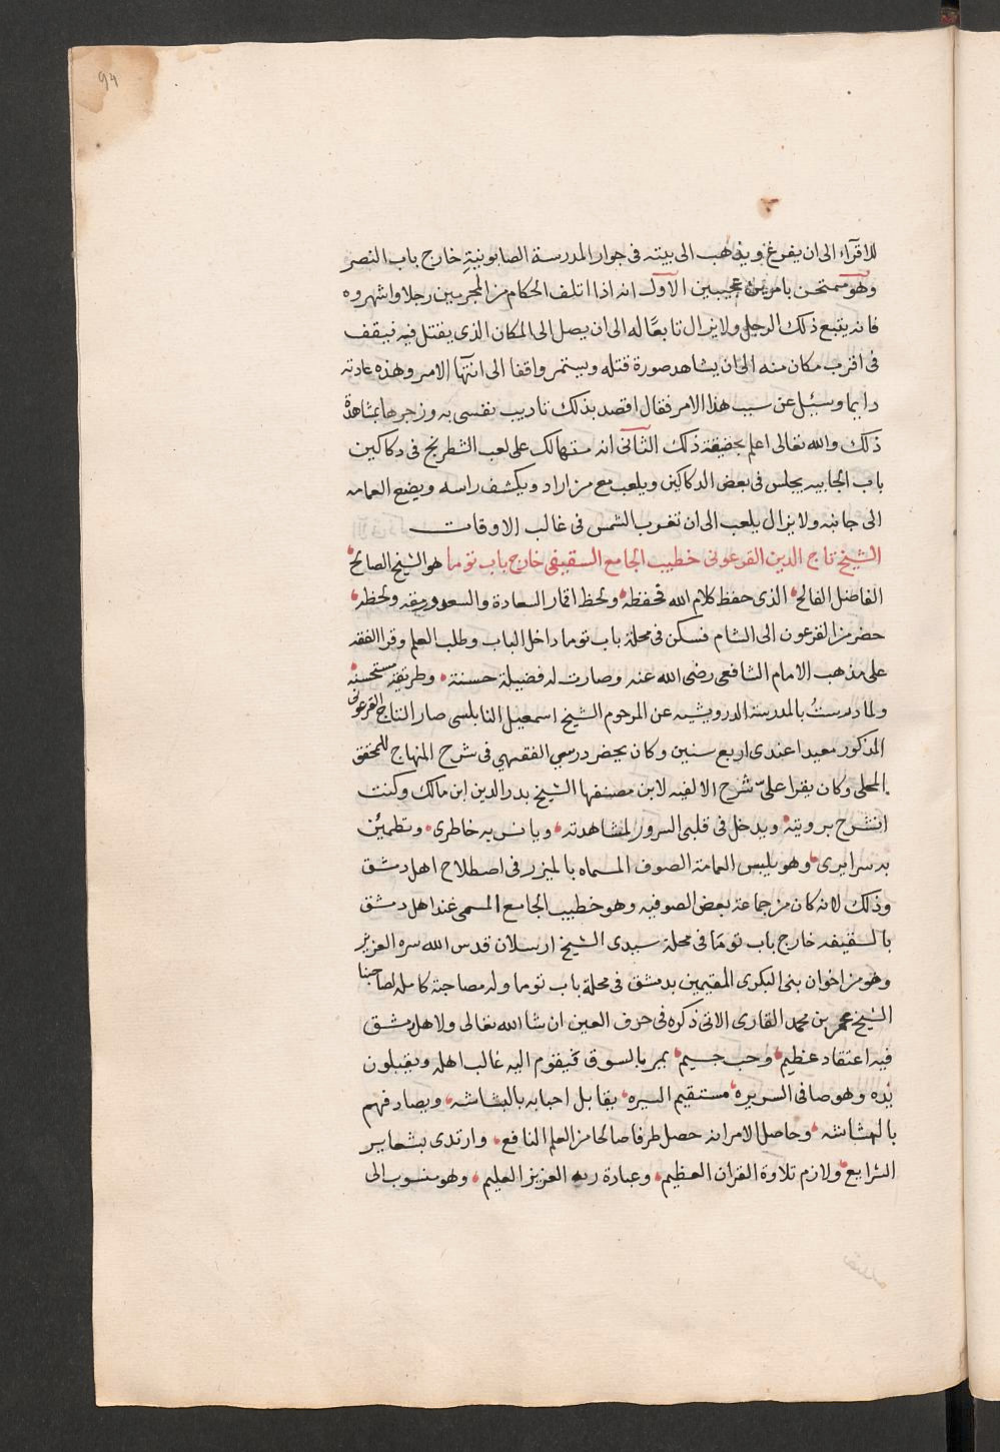 94
للاقرآء الى ان يفرغ ويذهب الى بيته فى جوار المدرسة الصابونية خارج باب النصر
وهو ممتحن بامرين عجيبين الاول انه اذا اتلف الحكام من المجرمين رجلا واشهروه
فانه يتبع ذلك الرجل ولا يزال تابعًا له الى ان يصل الى المكان الذى يقتل فيه فيقف
فى اقرب مكان منه الى ان يشاهد صورة قتله ويستمر واقفا الى انتهآ الامر وهذه عادته
دايما وسئل عن سبب هذا الامر فقال اقصد بذلك تاديب نفسى به وزجرها بمشاهدة
ذلك والله تعالى اعلم بحقيقة ذلك الثانى انه متهالك على لعب الشطرنج فى دكاكين
باب الجابيه يجلس فى بعض الدكاكين ويلعب مع من اراد ويكشف راسه ويضع العمامه
الى جانبه ولا يزال يلعب الى ان تغرب الشمس فى غالب الاوقات
الشيخ تاج الدين القرعونى خطيب الجامع السقيفى خارج باب توما هو الشيخ الصالح
الفاضل الفالح الذى حفظ كلام الله فحفظه ولحظ اقمار السعادة والسعد ورمقه ولحظه
حضر من القرعون الى الشام فسكن فى محلة باب توما داخل الباب وطلب العلم وقرا الفقه
على مذهب الامام الشافعى رضى الله عنه وصارت له فضيلة حسنة وطريقة مستحسنه
ولما درستُ بالمدرسة الدرويشيه عن المرحوم الشيخ اسمعيل النابلسى صار التاج القرعونى
المذكور معيدا عندى اربع سنين وكان يحضر درسي الفقهى فى شرح المنهاج للمحقق
المحلى وكان يقرا علىّ شرح الالفيه لابن مصنفها الشيخ بدر الدين ابن مالك وكنت
انشرح برويته ويدخل فى قلبى السرور لمشاهدته ويانس به خاطرى وتطمئن
به سرايرى وهو يلبس العمامة الصوف المسماه بالميزر فى اصطلاح اهل دمشق
وذلك لانه كان من جماعة بعض الصوفيه وهو خطيب الجامع المسمى عند اهل دمشق
بالسقيفه خارج باب توما فى محلة سيدى الشيخ ارسلان قدس الله سره العزيز
وهو من اخوان بنى البكرى المقيمين بدمشق فى محلة باب توما وله مصاحبة كاملة لصاحبنا
الشيخ عمر بن محمد القارى الاتى ذكره فى حرف العين ان شا الله تعالى ولاهل دمشق
فيه اعتقاد عظيم وحب جسيم يمر بالسوق فيقوم اليه غالب اهله ويقبلون
يده وهو صافى السريره مستقيم السيره يقابل احبابه بالبشاشه ويصادفهم
بالهشاشه وحاصل الامر انه حصل طرفا صالحا من العلم النافع وارتدى بشعاير
الشرايع ولازم تلاوة القران العظيم وعبادة ربه العزيز العليم وهو منسوب الى